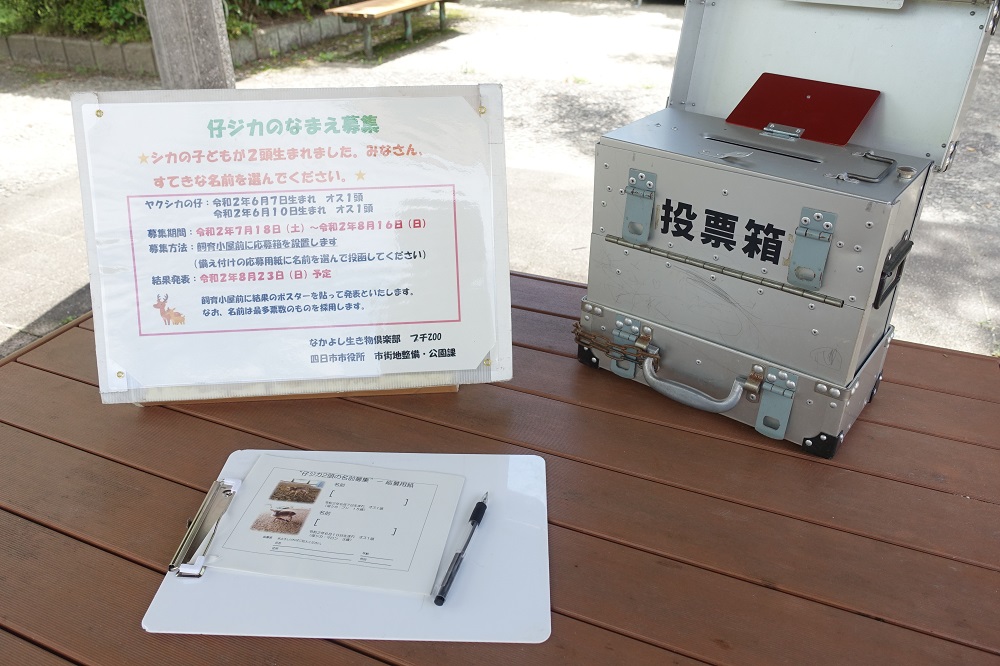 仔ジカのなまえ募集
★シカの子どもが2頭生まれました。みなさん、
すてきな名前を選んでください。★
ヤクシカの仔:令和2年6月7日生まれ オス1頭
令和2年6月10日生まれ オス1頭
募集期間:令和2年7月18日(土)~令和2年8月16日(日)
募集方法:飼育小屋前に応募箱を設置します
(備え付けの応募用紙に名前を選んで投函してください)
結果発表:令和2年8月23日(日)予定
飼育小屋前に結果のポスターを貼って発表といたします。
なお、名前は最多票数のものを採用します。
なかよし生き物倶楽部 プチZOO
四日市市役所 市街地整備・公園課
投票箱
"仔ジカ2頭の名前募集" - 応募用紙
名前
[ ]
名前
[ ]